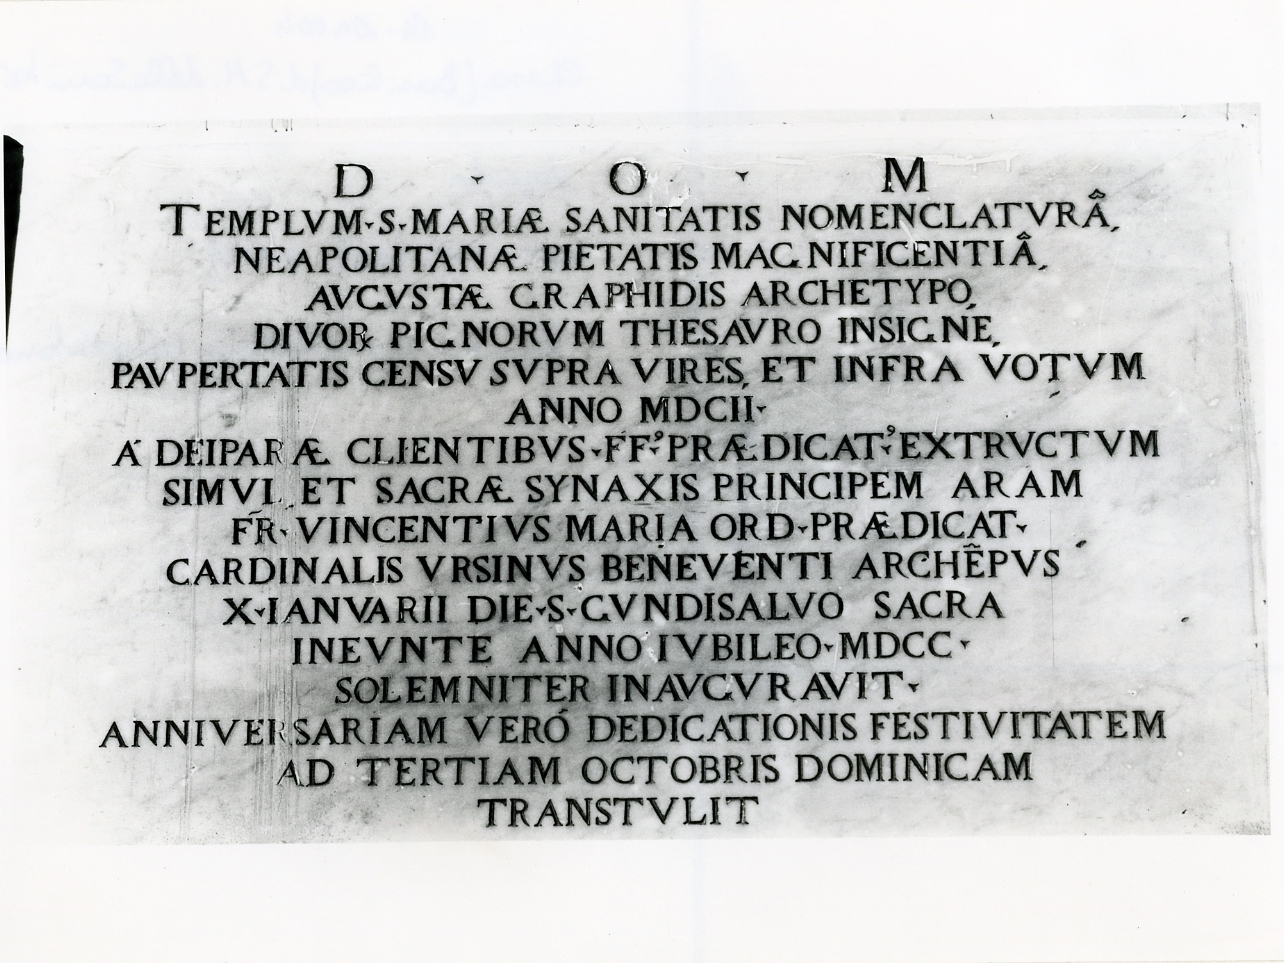 D · O · M
TEMPLVM·S·MARIÆ SANITATIS NOMENCLATVRÂ,
NEAPOLITANÆ PIETATIS MAGNIFICENTIÂ,
AVGVSTÆ GRAPHIDIS ARCHETYPO,
DIVOꝜ PIGNORVM THESAVRO INSIGNE,
PAVPERTATIS CENSV SVPRA VIRES, ET INFRA VOTVM
ANNO MDCII·
A' DEIPARÆ CLIENTIBVS·FF·PRÆDICAT·EXTRVCTVM
SIMVL ET SACRÆ SYNAXIS PRINCIPEM ARAM
FR̃· VINCENTIVS MARIA ORD·PRÆDICAT·
CARDINALIS VRSINVS BENEVENTI ARCHẼPVS
X·IANVARII DIE·S·GVNDISALVO SACRA
INEVNTE ANNO IVBILEO·MDCC·
SOLEMNITER INAVGVRAVIT·
ANNIVERSARIAM VERÓ DEDICATIONIS FESTIVITATEM
AD TERTIAM OCTOBRIS DOMINICAM
TRANSTVLIT